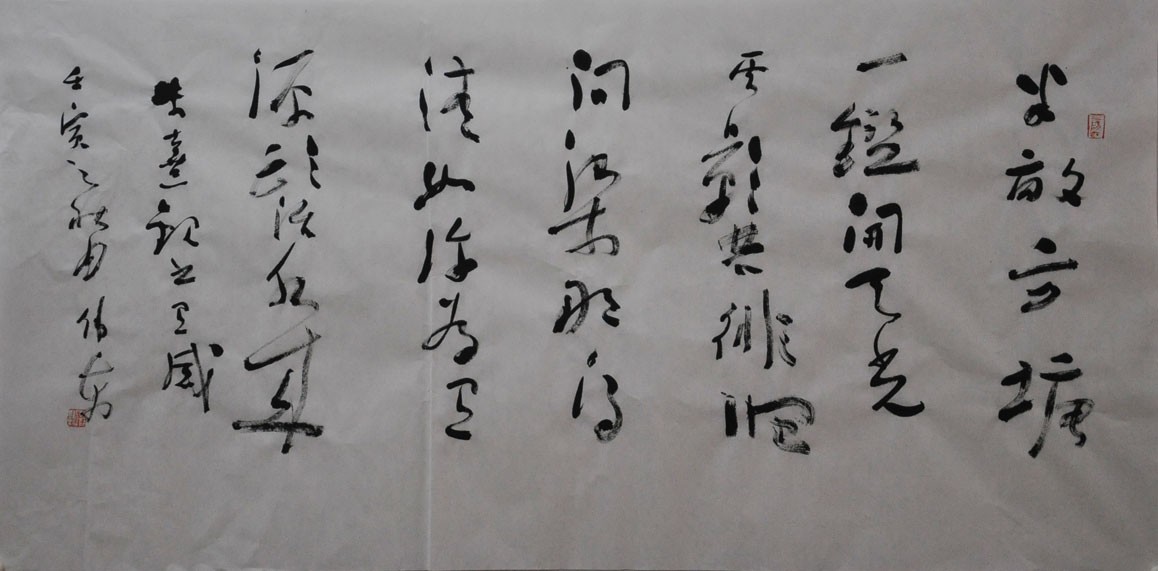 半畝方塘
一鑑開天光
云影共徘徊
问渠那得
清如许为有
源头活水来
朱熹观书有感
壬寅之秋月